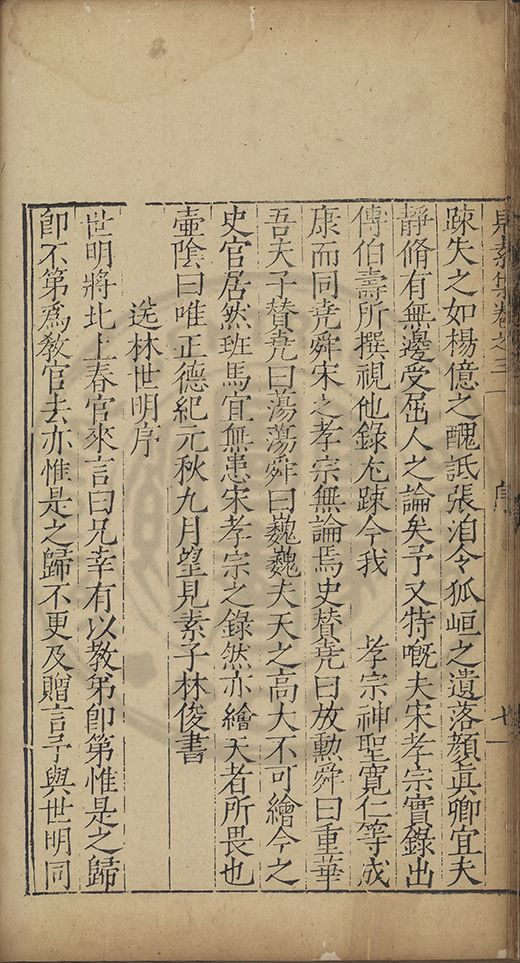 見素集卷之三 序 七
疎失之如楊億之醜詆張洎令狐峘之遺落顏眞卿宜夫
靜脩有無邊受屈人之論矣予又特嘅夫宋孝宗實錄出
傅伯壽所撰視他錄尤疎今我 孝宗神聖寛仁等成
康而同堯舜宋之孝宗無論焉史贊堯曰放勳舜曰重華
吾夫子贊堯曰蕩蕩舜曰巍巍夫天之高大不可繪今之
史官居然班馬宜無患宋孝宗之錄然亦繪天者所畏也
壷陰曰唯正德紀元秋九月望見素子林俊書
送林世明序
世明將北上春官來言曰兄幸有以教弟卽第惟是之歸
卽不第爲教官去亦惟是之歸不更及贈言予與世明同